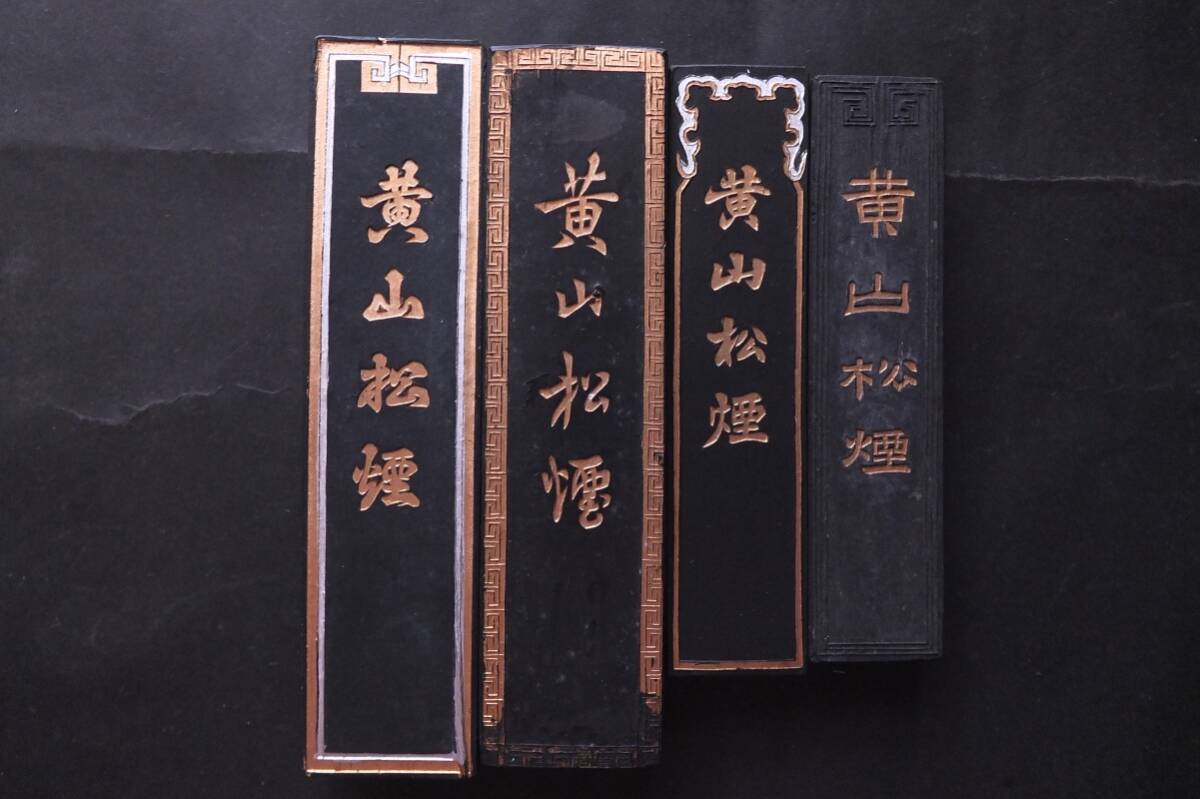 黄山松煙
黄山松煙
黄山松煙
黄山松煙